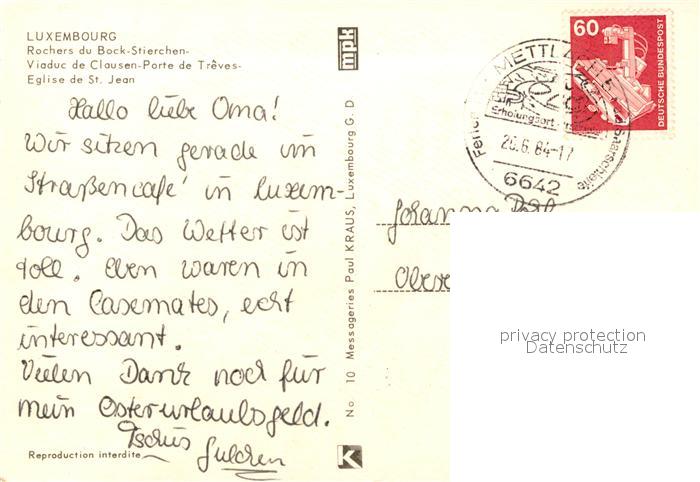 LUXEMBOURG
Rochers du Bock-Stierchen-
Viaduc de Clausen-Porte de Trêves-
Eglise de St. Jean
Hallo liebe Oma!
Wir sitzen gerade im
Straßencafé in Luxem-
bourg. Das Wetter ist
toll. Eben waren in
den Casemates, echt
interessant.
Vielen Dank noch für
mein Osterurlaubsgeld.
Tschüs
Reproduction interdite
mpk
No. 10 Messageries Paul KRAUS, Luxembourg G. D
K
60
DEUTSCHE BUNDESPOST
METTLACH
Erholungsort
Saarschleife
26.6.84-17
6642
Johanna
privacy protection
Datenschutz